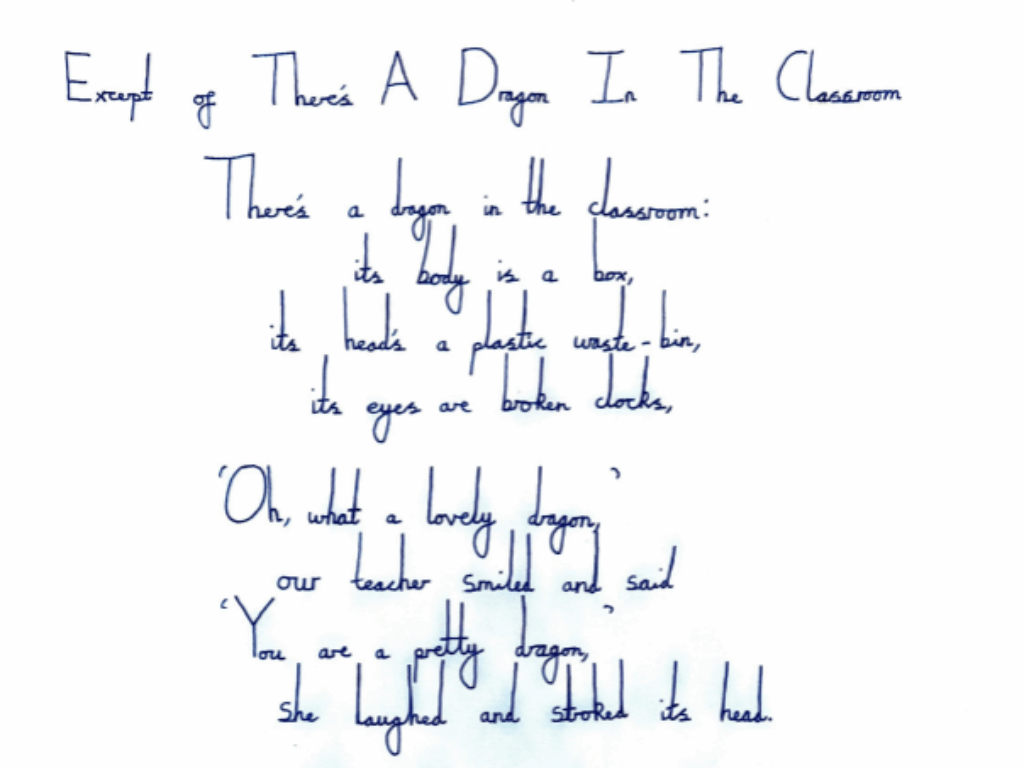 Except of There's A Dragon In The Classroom
There's a dragon in the classroom:
its body is a box,
its head's a plastic waste-bin,
its eyes are broken clocks,
'Oh, what a lovely dragon,'
our teacher smiled and said
'You are a pretty dragon,'
She laughed and stroked its head.